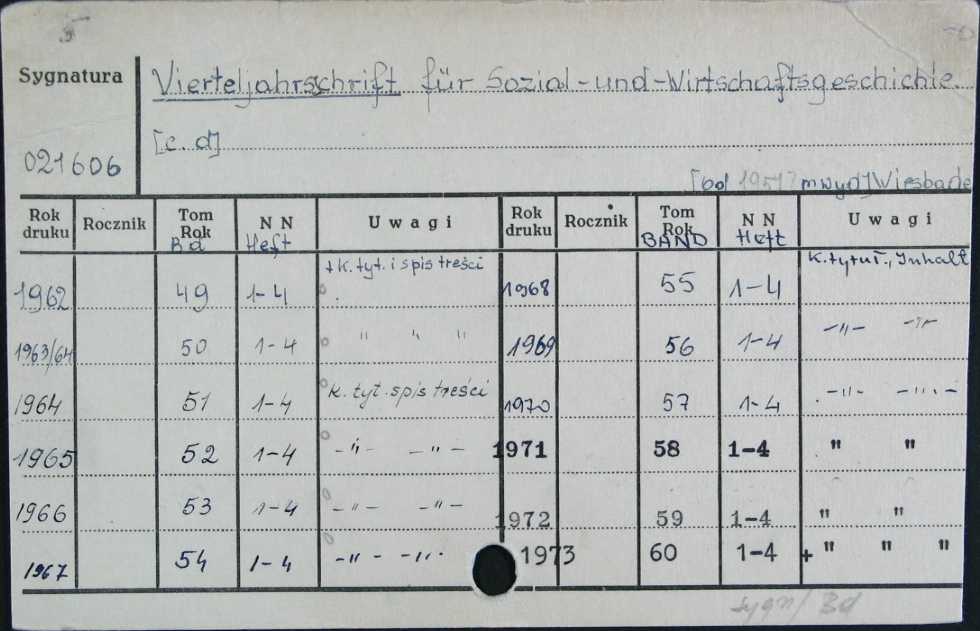 Sygnatura
Vierteljahrsschrift für Sozial-und-Wirtschaftsgeschichte.
[c.d]
021606
[od 1951? m wyd] Wiesbade
Rok druku Rocznik Tom Rok N N U w a g i Rok druku Rocznik Tom Rok N N U w a g i
Bd Heft BAND Heft
1962 49 1-4 + k. tyt. i spis treści 1968 55 1-4 K. tytuł., Inhalt
1963/64 50 1-4 " " " 1969 56 1-4 -"- -"-
1964 51 1-4 k. tyt. spis treści 1970 57 1-4 -"- -"-
1965 52 1-4 -"- -"- 1971 58 1-4 " "
1966 53 1-4 -"- -"- 1972 59 1-4 " "
1967 54 1-4 -"- -"- 1973 60 1-4 + " " "
sygn/ Bd